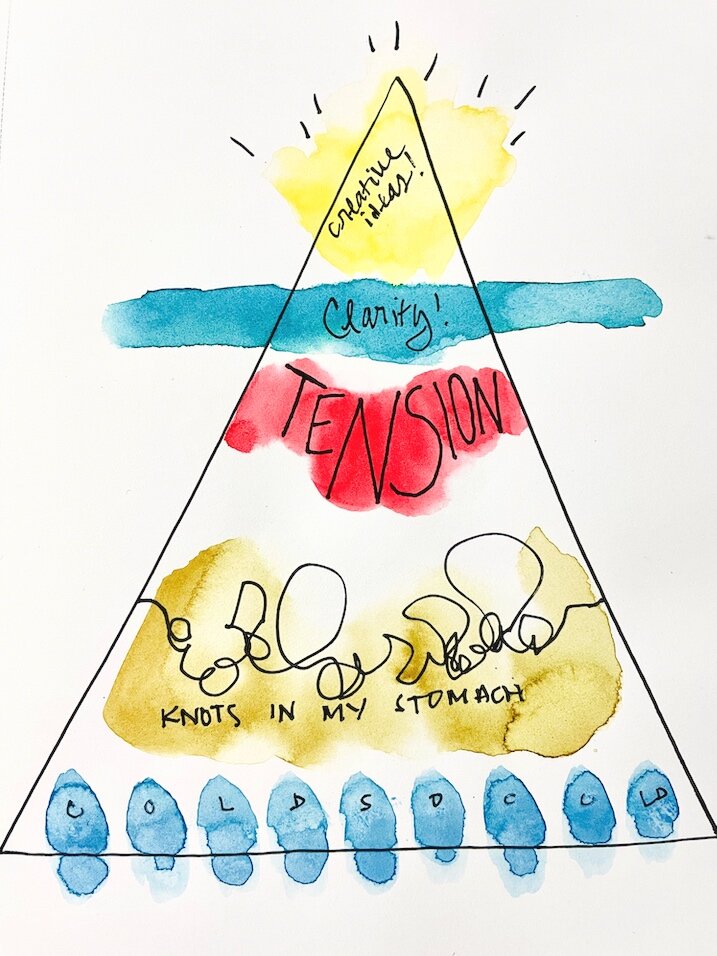 creative
ideas!
Clarity!
TENSION
KNOTS IN MY STOMACH
C O L D S O C O LD